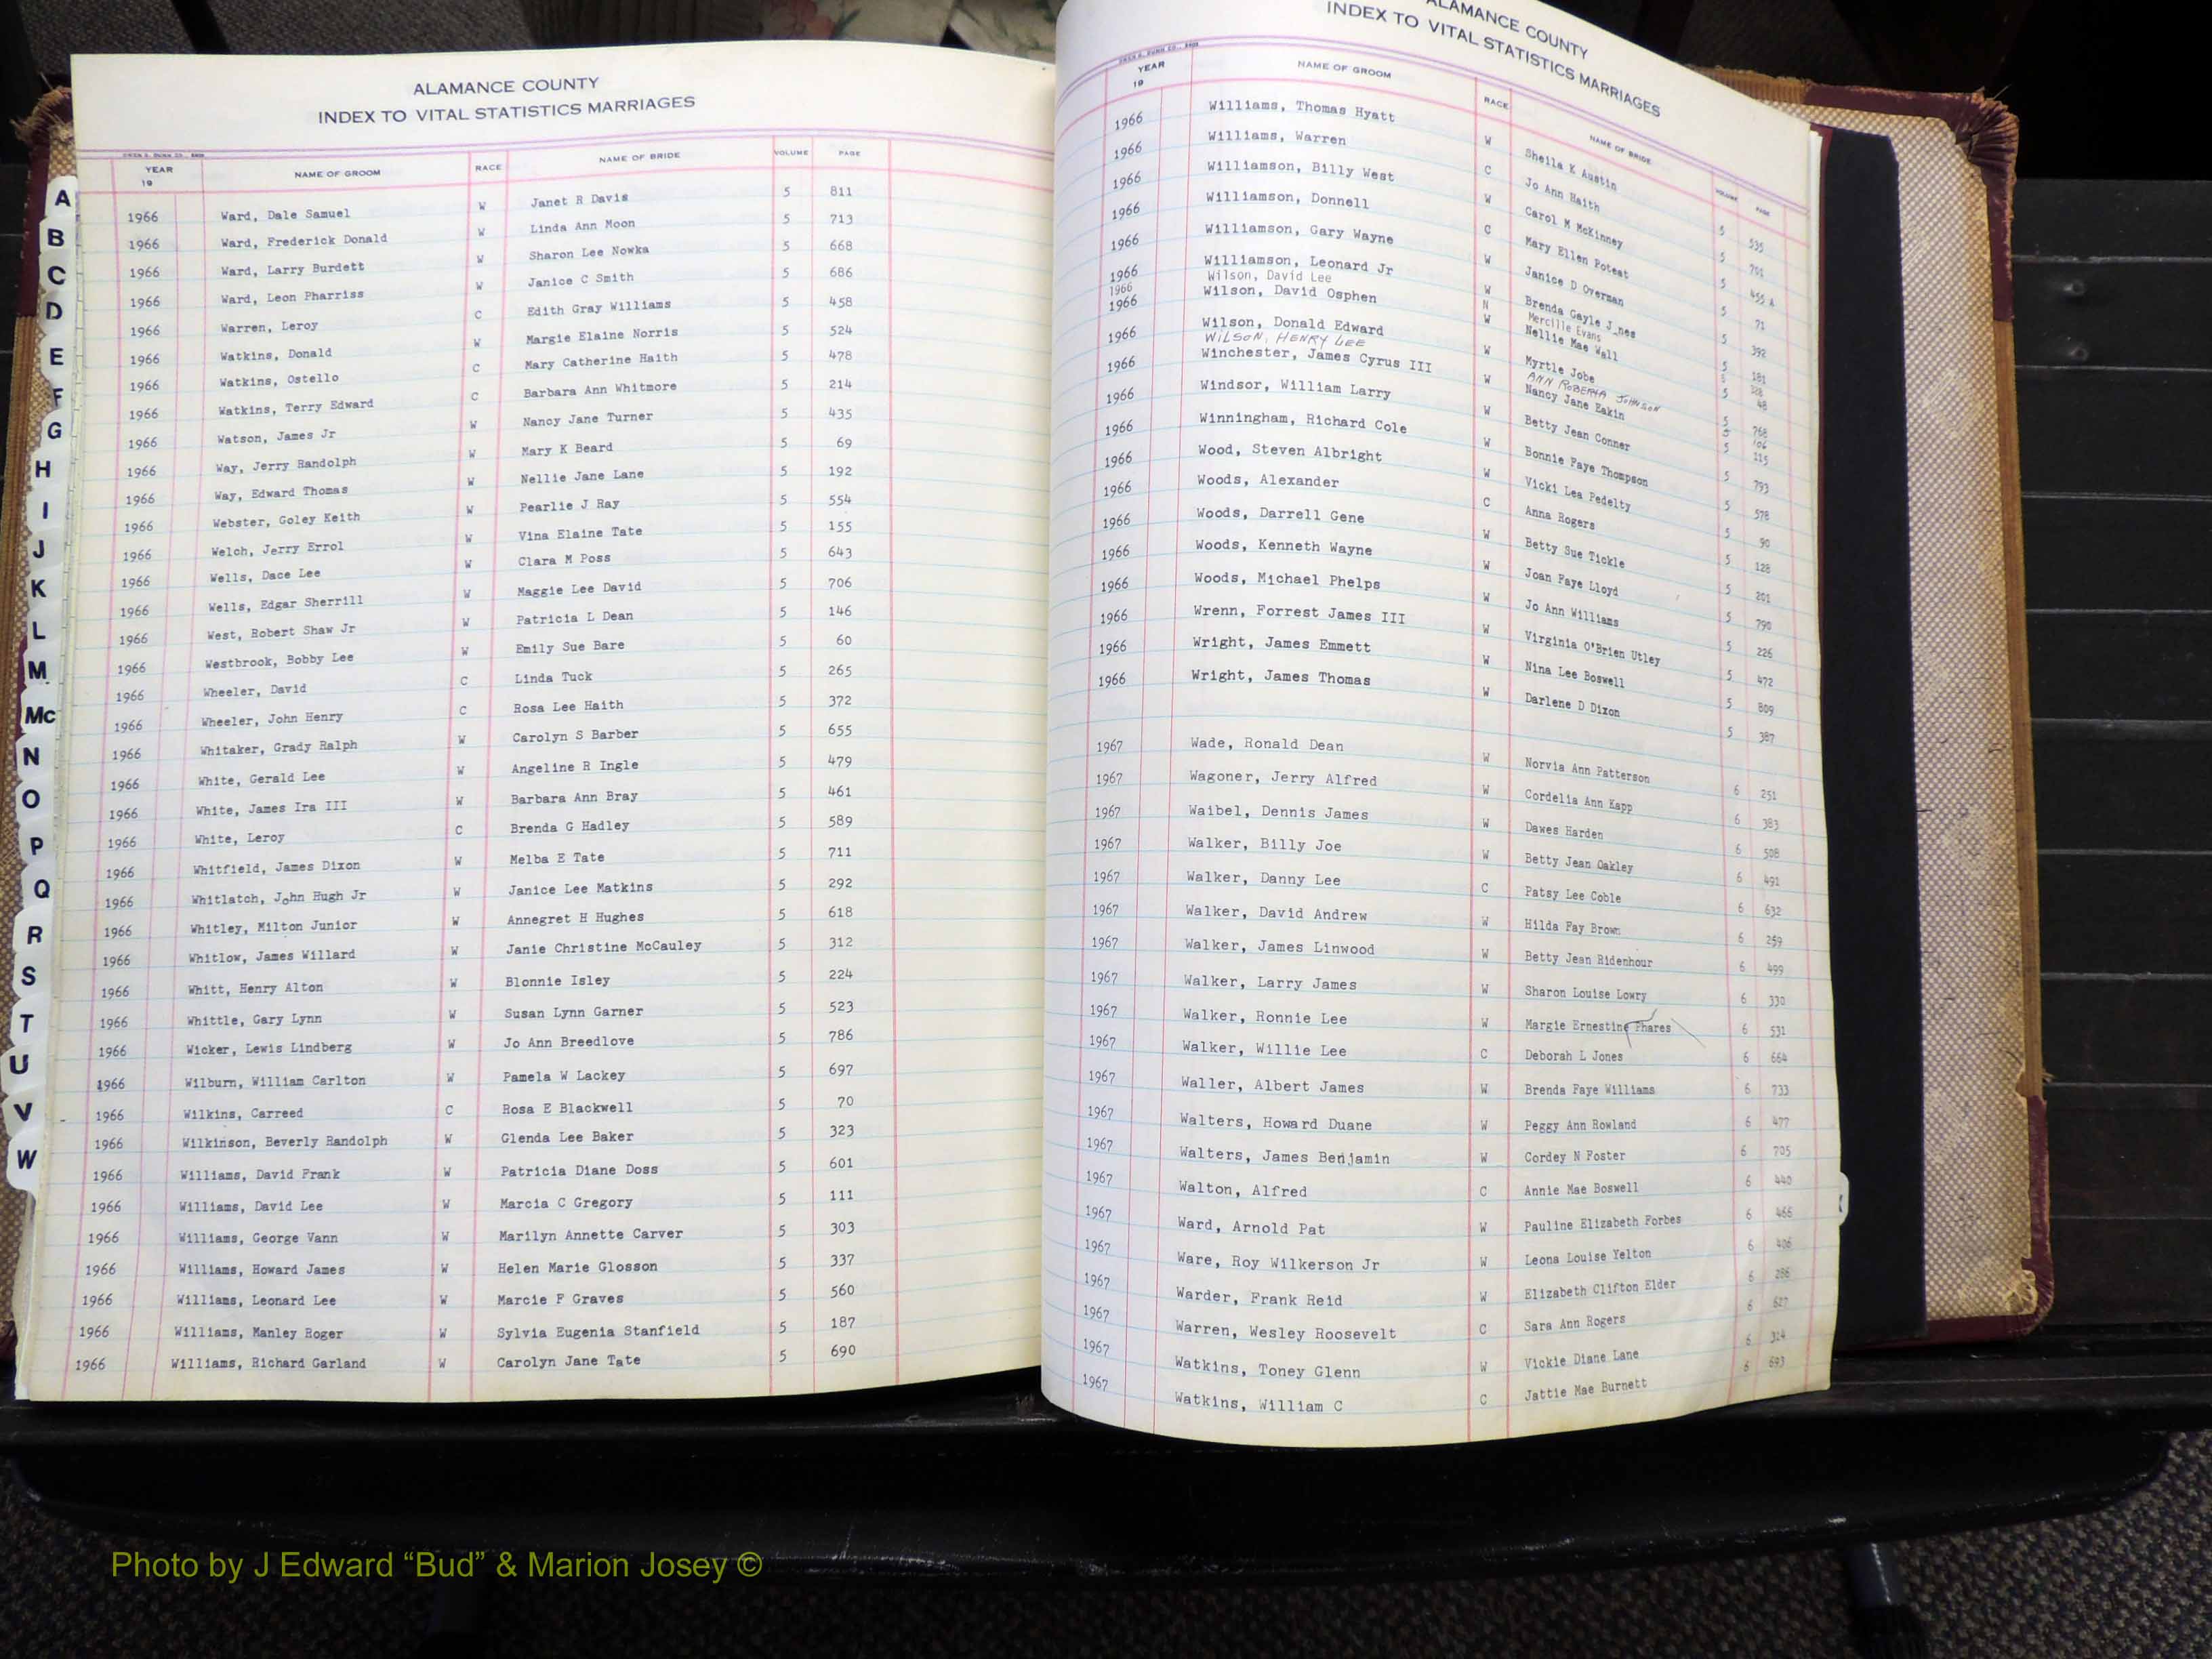 ALAMANCE COUNTY
INDEX TO VITAL STATISTICS MARRIAGES
YEAR 19 NAME OF GROOM RACE NAME OF BRIDE VOLUME PAGE
1966 Ward, Dale Samuel W Janet R Davis 5 811
1966 Ward, Frederick Donald W Linda Ann Moon 5 713
1966 Ward, Larry Burdett W Sharon Lee Nowka 5 668
1966 Ward, Leon Pharriss W Janice C Smith 5 686
1966 Warren, Leroy C Edith Gray Williams 5 458
1966 Watkins, Donald W Margie Elaine Norris 5 524
1966 Watkins, Ostello C Mary Catherine Haith 5 478
1966 Watkins, Terry Edward C Barbara Ann Whitmore 5 214
1966 Watson, James Jr W Nancy Jane Turner 5 435
1966 Way, Jerry Randolph W Mary K Beard 5 69
1966 Way, Edward Thomas W Nellie Jane Lane 5 192
1966 Webster, Goley Keith W Pearlie J Ray 5 554
1966 Welch, Jerry Errol W Vina Elaine Tate 5 155
1966 Wells, Dace Lee W Clara M Poss 5 643
1966 Wells, Edgar Sherrill W Maggie Lee David 5 706
1966 West, Robert Shaw Jr W Patricia L Dean 5 146
1966 Westbrook, Bobby Lee W Emily Sue Bare 5 60
1966 Wheeler, David C Linda Tuck 5 265
1966 Wheeler, John Henry C Rosa Lee Haith 5 372
1966 Whitaker, Grady Ralph W Carolyn S Barber 5 655
1966 White, Gerald Lee W Angeline R Ingle 5 479
1966 White, James Ira III W Barbara Ann Bray 5 461
1966 White, Leroy C Brenda G Hadley 5 589
1966 Whitfield, James Dixon W Melba E Tate 5 711
1966 Whitlatch, John Hugh Jr W Janice Lee Matkins 5 292
1966 Whitley, Milton Junior W Annegret H Hughes 5 618
1966 Whitlow, James Willard W Janie Christine McCauley 5 312
1966 Whitt, Henry Alton W Blonnie Isley 5 224
1966 Whittle, Gary Lynn W Susan Lynn Garner 5 523
1966 Wicker, Lewis Lindberg W Jo Ann Breedlove 5 786
1966 Wilburn, William Carlton W Pamela W Lackey 5 697
1966 Wilkins, Carreed C Rosa E Blackwell 5 70
1966 Wilkinson, Beverly Randolph W Glenda Lee Baker 5 323
1966 Williams, David Frank W Patricia Diane Doss 5 601
1966 Williams, David Lee W Marcia C Gregory 5 111
1966 Williams, George Vann W Marilyn Annette Carver 5 303
1966 Williams, Howard James W Helen Marie Glosson 5 337
1966 Williams, Leonard Lee W Marcie F Graves 5 560
1966 Williams, Manley Roger W Sylvia Eugenia Stanfield 5 187
1966 Williams, Richard Garland W Carolyn Jane Tate 5 690
A
B
C
D
E
F
G
H
I
J
K
L
M
Mc
N
O
P
Q
R
S
T
U
V
W
ALAMANCE COUNTY
INDEX TO VITAL STATISTICS MARRIAGES
YEAR 19 NAME OF GROOM RACE NAME OF BRIDE VOLUME PAGE
1966 Williams, Thomas Hyatt W Sheila K Austin 5 535
1966 Williams, Warren C Jo Ann Haith 5 701
1966 Williamson, Billy West W Carol M McKinney 5 455 A
1966 Williamson, Donnell C Mary Ellen Poteat 5 71
1966 Williamson, Gary Wayne W Janice D Overman 5 392
1966 Williamson, Leonard Jr W Brenda Gayle J nes 5 181
1966 Wilson, David Lee N Mercille Evans 5 128
1966 Wilson, David Osphen W Nellie Mae Wall 5 48
1966 Wilson, Donald Edward W Myrtle Jobe 5 768
WILSON, HENRY LEE ANN ROBERTA JOHNSON 5 106
1966 Winchester, James Cyrus III W Nancy Jane Eakin 5 115
1966 Windsor, William Larry W Betty Jean Conner 5 793
1966 Winningham, Richard Cole W Bonnie Faye Thompson 5 578
1966 Wood, Steven Albright W Vicki Lea Pedelty 5 90
1966 Woods, Alexander C Anna Rogers 5 128
1966 Woods, Darrell Gene W Betty Sue Tickle 5 201
1966 Woods, Kenneth Wayne W Joan Faye Lloyd 5 790
1966 Woods, Michael Phelps W Jo Ann Williams 5 226
1966 Wrenn, Forrest James III W Virginia O'Brien Utley 5 472
1966 Wright, James Emmett W Nina Lee Boswell 5 809
1966 Wright, James Thomas W Darlene D Dixon 5 387
1967 Wade, Ronald Dean W Norvia Ann Patterson 6 251
1967 Wagoner, Jerry Alfred W Cordelia Ann Kapp 6 383
1967 Waibel, Dennis James W Dawes Harden 6 508
1967 Walker, Billy Joe W Betty Jean Oakley 6 491
1967 Walker, Danny Lee C Patsy Lee Coble 6 632
1967 Walker, David Andrew W Hilda Fay Brown 6 259
1967 Walker, James Linwood W Betty Jean Ridenhour 6 499
1967 Walker, Larry James W Sharon Louise Lowry 6 330
1967 Walker, Ronnie Lee W Margie Ernestine Phares 6 531
1967 Walker, Willie Lee C Deborah L Jones 6 664
1967 Waller, Albert James W Brenda Faye Williams 6 733
1967 Walters, Howard Duane W Peggy Ann Rowland 6 477
1967 Walters, James Benjamin W Cordey N Foster 6 705
1967 Walton, Alfred C Annie Mae Boswell 6 440
1967 Ward, Arnold Pat W Pauline Elizabeth Forbes 6 466
1967 Ware, Roy Wilkerson Jr W Leona Louise Yelton 6 406
1967 Warder, Frank Reid W Elizabeth Clifton Elder 6 286
1967 Warren, Wesley Roosevelt C Sara Ann Rogers 6 627
1967 Watkins, Toney Glenn W Vickie Diane Lane 6 314
1967 Watkins, William C C Jattie Mae Burnett 6 693
Photo by J Edward “Bud” & Marion Josey ©